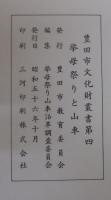 豊田市文化財叢書第四
挙母祭りと山車
発行 豊田市教育委員会
編集 挙母祭り山車調査委員会
発行日 昭和五十六年十月
印刷 三河印刷株式会社